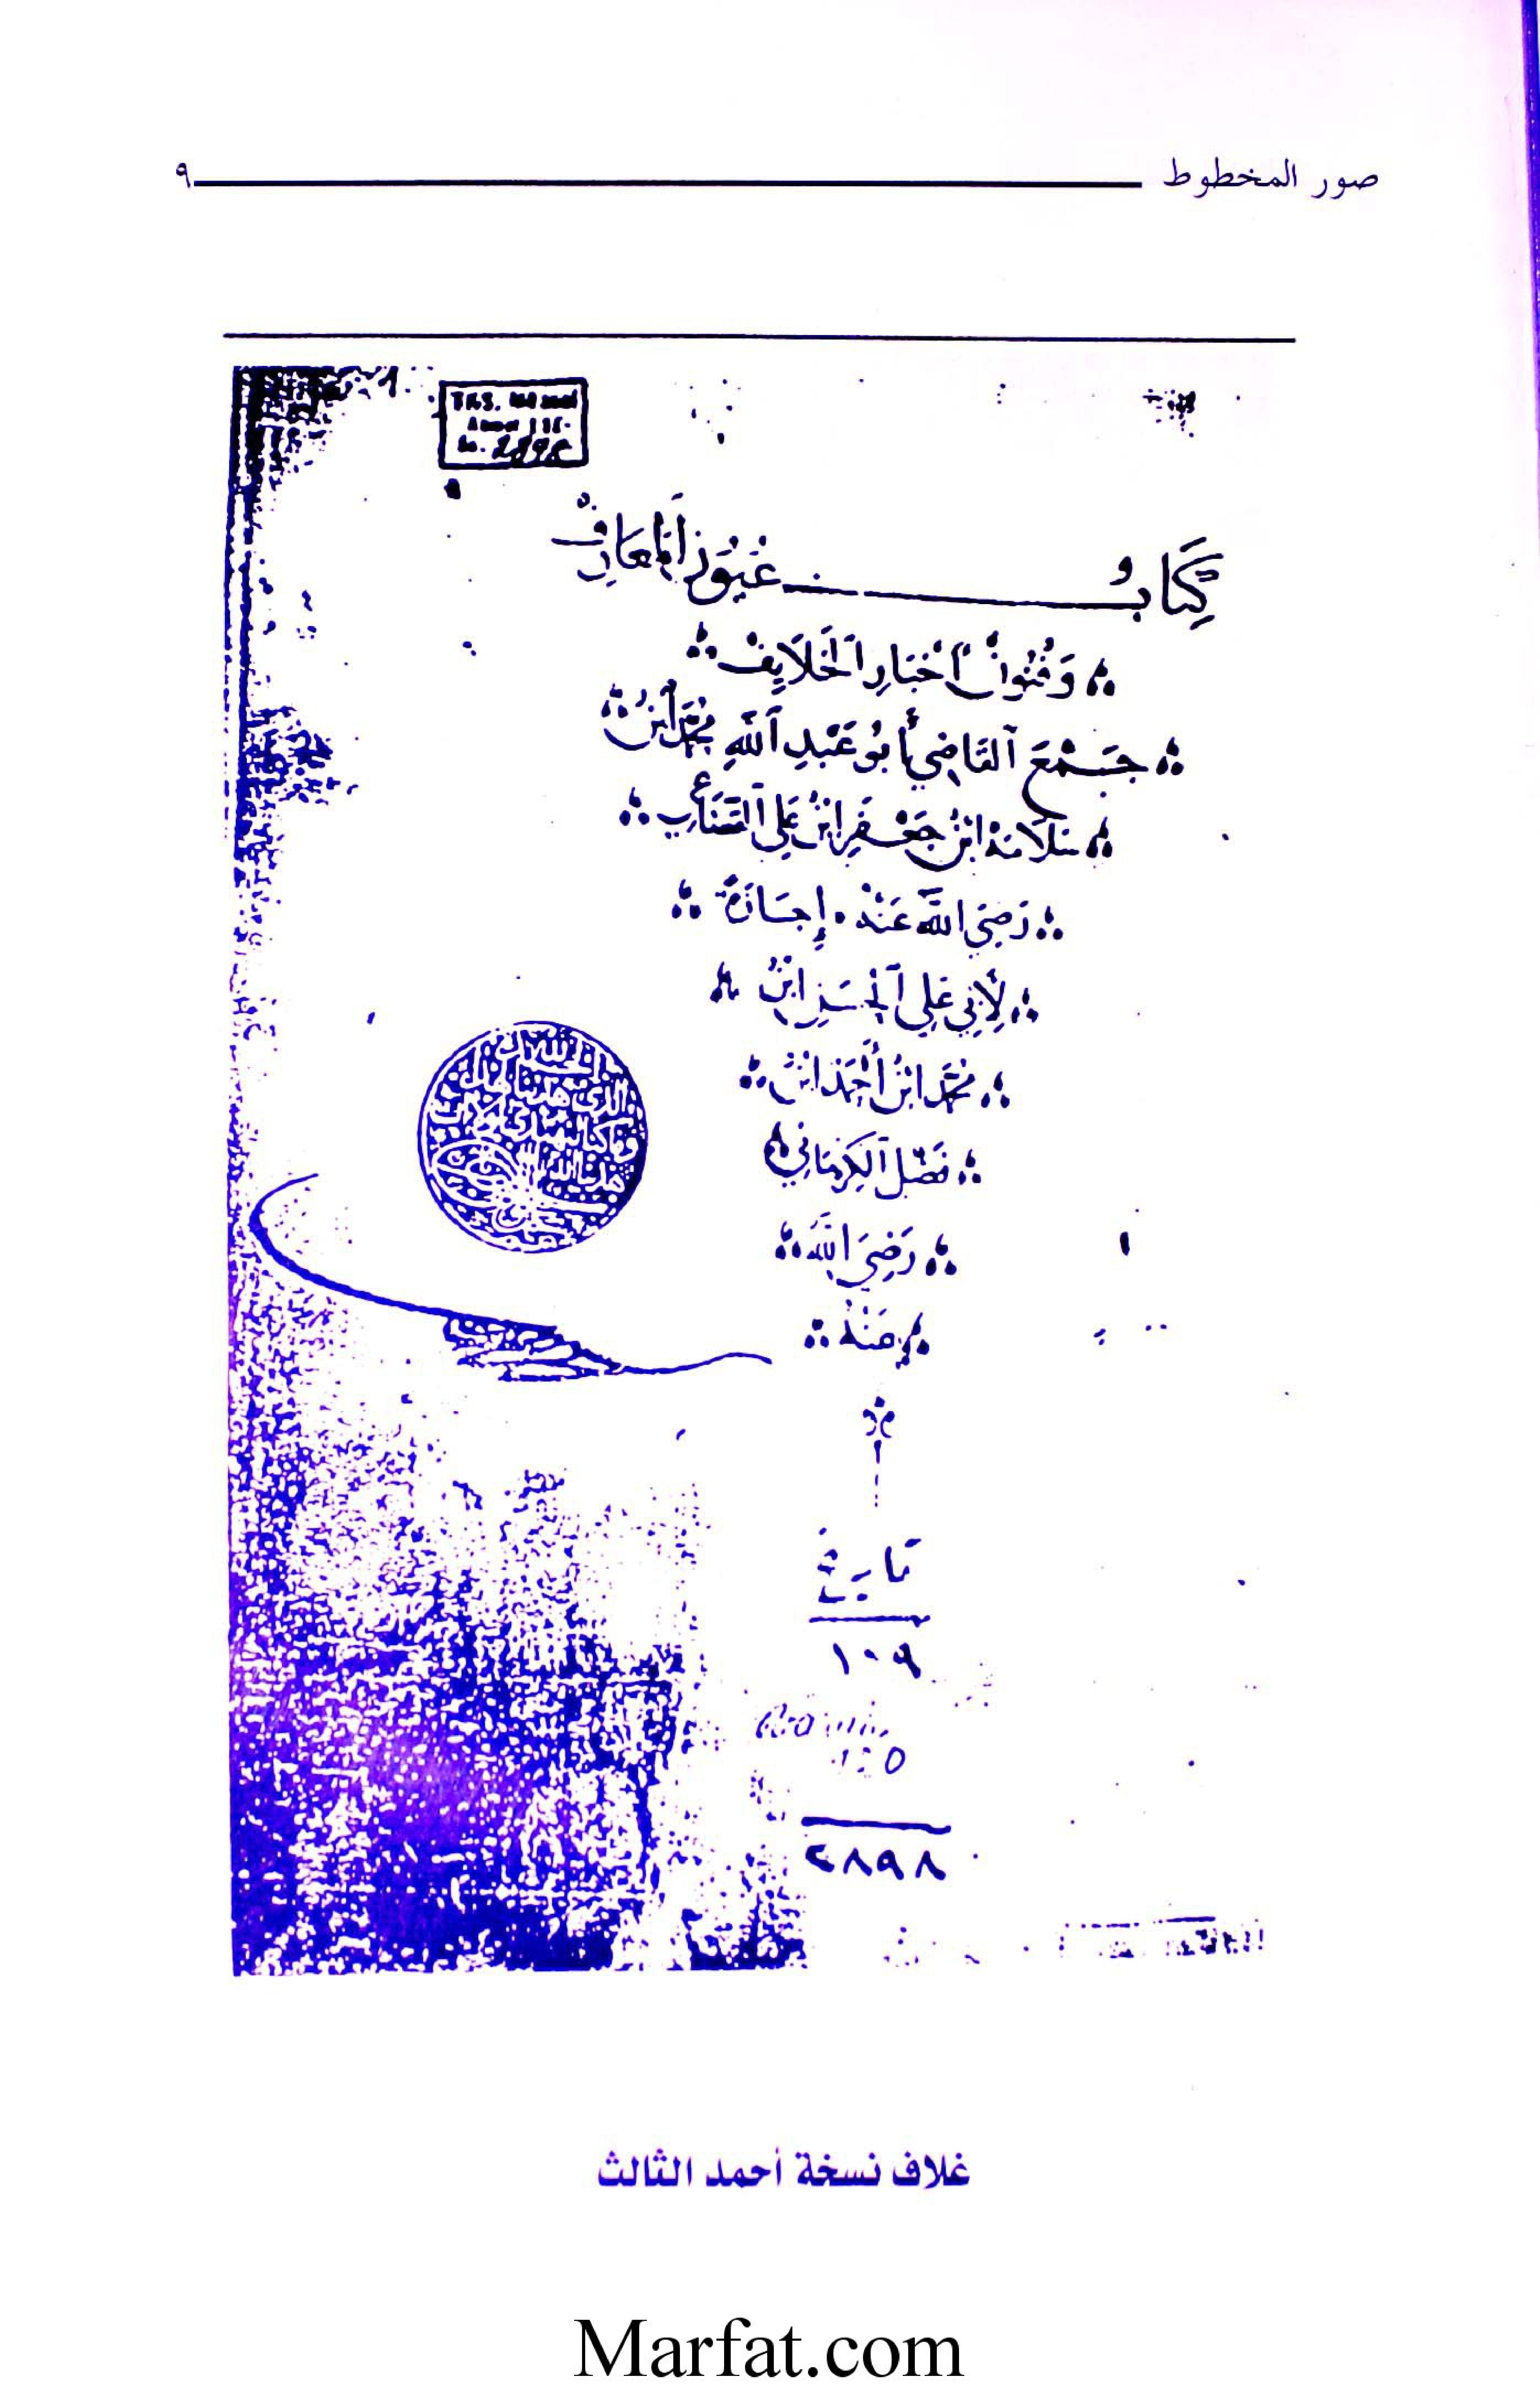 صور المخطوط ٩
كِتَابُ عُيُونِ ٱلْمَعَارِفِ
وَفُنُونُ أَخْبَارِ ٱلْخَلَايِفْ
جَمْعَ ٱلقَاضِي أَبُو عَبْدِ ٱللَّهِ مُحَمَّد ٱبْنُ
سَلَامَهْ ابْنُ جَعْفَرِ ابْنُ عَلِي ٱلقُضَاعِي
رَضِيَ اللَّهُ عَنْهُ إِجَازَةً
لِأَبِي عَلِي ٱلْحَسَنِ ابْنُ
مُحَمَّد ابْنُ أَحْمَد ابْنُ
فَضْلِ ٱلكِرْمَانِي
رَضِيَ اللَّهُ
عَنْهُ
تاريخ
١٠٩
٢٨٩٨
غلاف نسخة أحمد الثالث
Marfat.com